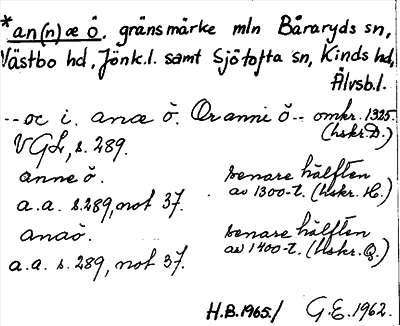 *an(n)æ ö. gränsmärke mln Båraryds sn,
Västbo hd, Jönk.l. samt Sjötofta sn, Kinds hd,
Älvsb.l.
--oc i. anæ ö. Or anni ö-- omkr. 1325.
(hskr. D.)
VGL, s. 289.
anne ö. senare hälften
av 1300-t. (hskr. H.)
a.a. s. 289, not 37.
anaö. senare hälften
av 1400-t. (hskr. Q.)
a.a. s. 289, not 37.
H.B. 1965./ G.E. 1962.